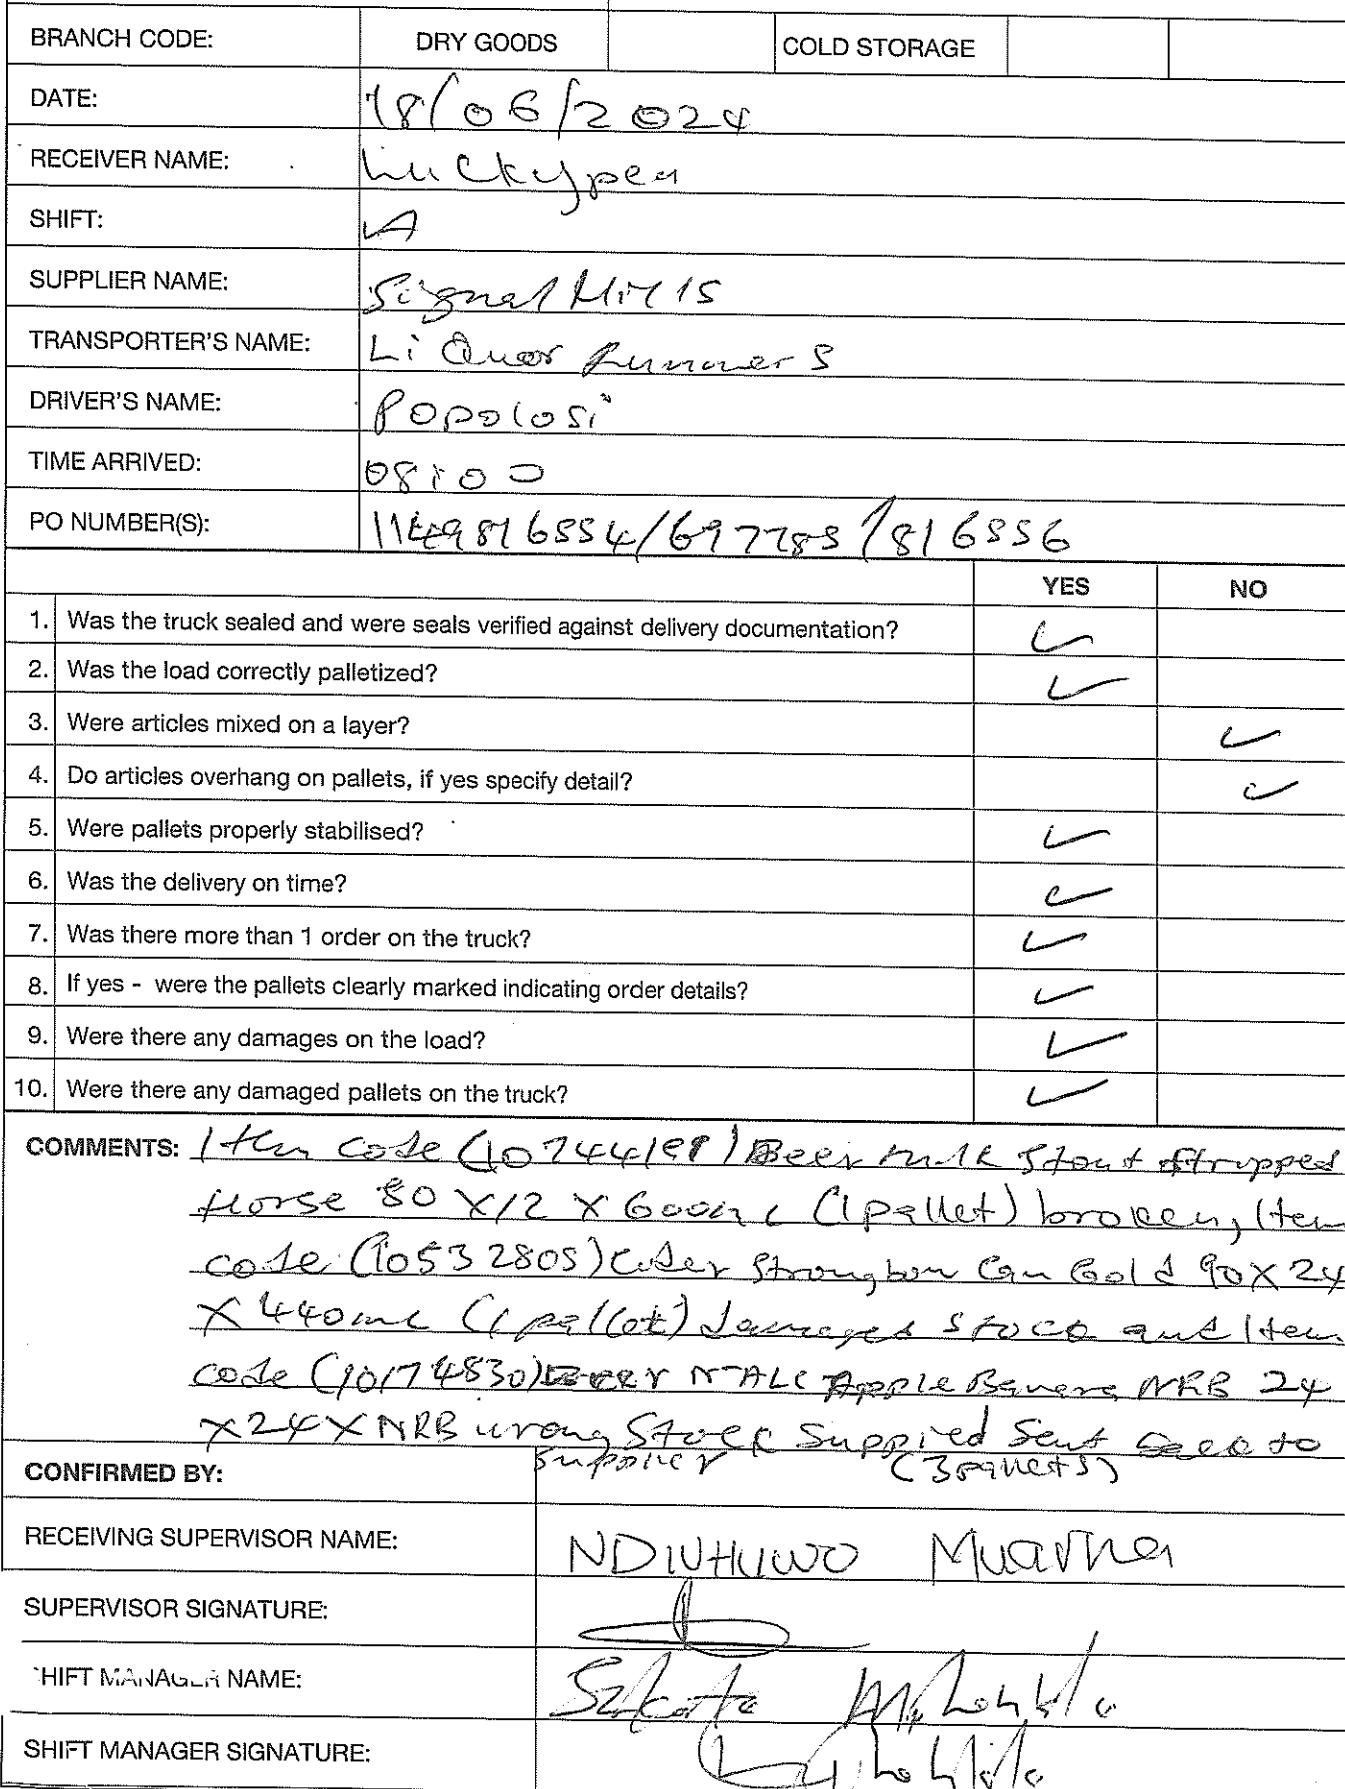 BRANCH CODE: DRY GOODS COLD STORAGE
DATE: 18/06/2024
RECEIVER NAME: Luckyper
SHIFT: A
SUPPLIER NAME: Signal Hills
TRANSPORTER'S NAME: LiQuor Runners
DRIVER'S NAME: Popolosi
TIME ARRIVED: 08:00
PO NUMBER(S): 1149816554/697785/816556
YES NO
1. Was the truck sealed and were seals verified against delivery documentation? ✓
2. Was the load correctly palletized? ✓
3. Were articles mixed on a layer? ✓
4. Do articles overhang on pallets, if yes specify detail? ✓
5. Were pallets properly stabilised? ✓
6. Was the delivery on time? ✓
7. Was there more than 1 order on the truck? ✓
8. If yes - were the pallets clearly marked indicating order details? ✓
9. Were there any damages on the load? ✓
10. Were there any damaged pallets on the truck? ✓
COMMENTS: Item code (10744198) Beer milk Stout Stripped
Horse 80 X12 X 600ml (1 pallet) broken, Item
code (10532805) Cider Strongbow Can Gold 90X24
X 440ml (1 pallet) damaged stock and Item
code (10174830) Beer N-ALC Apple Banana NRB 24
X24XNRB wrong Stock Supplied Sent back to
Supplier (3pallets)
CONFIRMED BY:
RECEIVING SUPERVISOR NAME: NDIVHUWO
SUPERVISOR SIGNATURE:
SHIFT MANAGER NAME:
SHIFT MANAGER SIGNATURE: